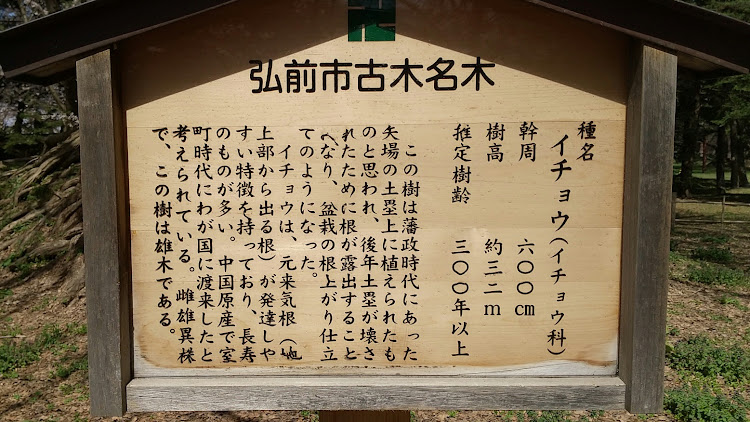 弘前市古木名木
種名
イチョウ(イチョウ科)
幹周 六〇〇cm
樹高 約三二m
推定樹齢 三〇〇年以上
この樹は藩政時代にあった
矢場の土塁上に植えられたも
のと思われ、後年土塁が壊さ
れたために根が露出すること
になり、盆栽の根上がり仕立
てのようになった。
イチョウは、元来気根(地
上部から出る根)が発達しや
すい特徴を持っており、長寿
のものが多い。中国原産で室
町時代にわが国に渡来したと
考えられている。雌雄異株
で、この樹は雄木である。